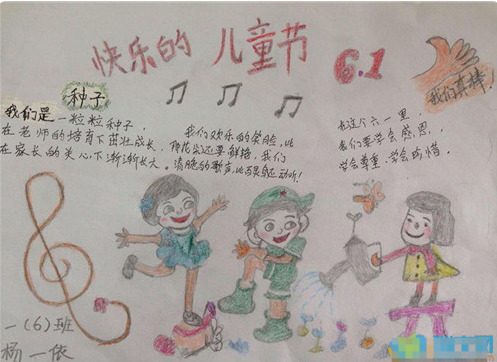 快乐的 儿童节 6.1
我们真棒!
种子
我们是一粒粒种子,
在老师的培育下茁壮成长,
在家长的关心下渐渐长大。
我们欢乐的笑脸,比
那花朵还要鲜艳,我们
清脆的歌声,比百灵还动听!
在这个六一里,
我们要学会感恩,
学会尊重,学会珍惜。
一(6)班
杨一依